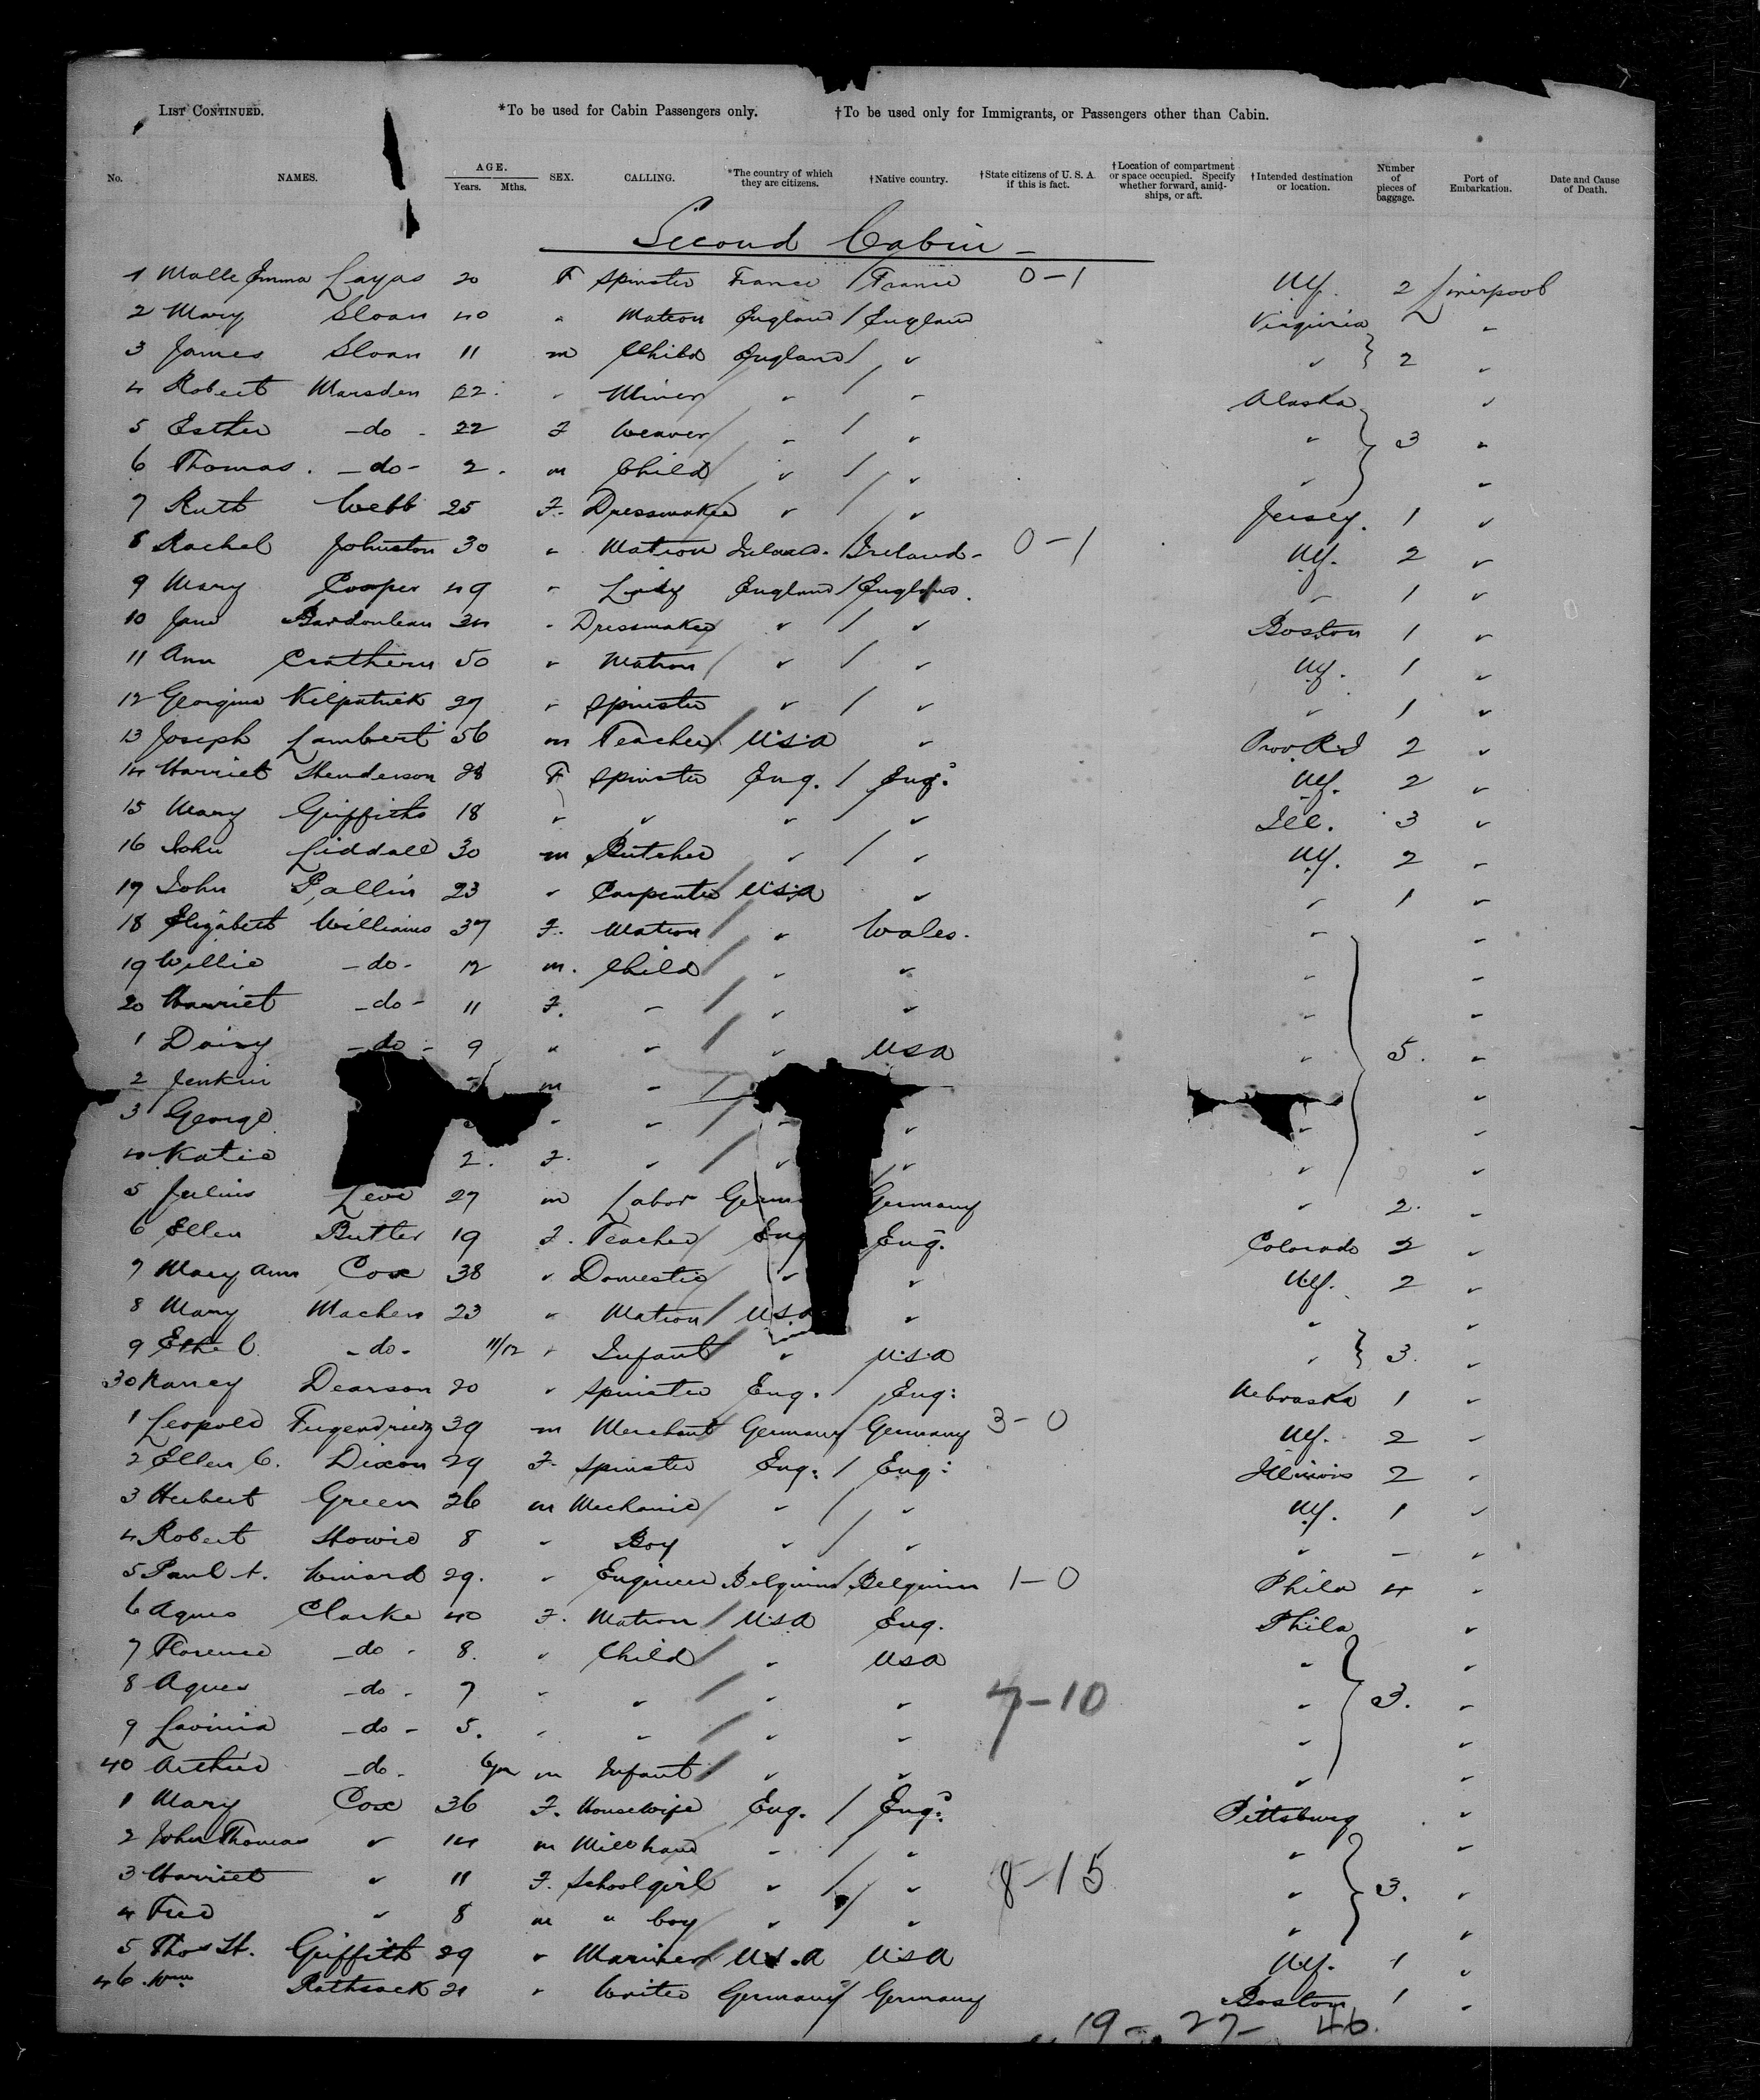 List Continued. *To be used for Cabin Passengers only. †To be used only for Immigrants, or Passengers other than Cabin.
No. NAMES. AGE. Years. Mths. SEX. CALLING. *The country of which they are citizens. †Native country. †State citizens of U. S. A. if this is fact. †Location of compartment or space occupied. Specify whether forward, amidships, or aft. †Intended destination or location. Number of pieces of baggage. Port of Embarkation. Date and Cause of Death.
Second Cabin
1 Malle Emma Layas 20 F Spinster France / France 0-1 NY. 2 Liverpool
2 Mary Sloan 40 " Matron England / England Virginia "
3 James Sloan 11 m Child England / " " } 2 "
4 Robert Marsden 22 " Miner " / " Alaska "
5 Esther -do- 22 F Weaver " / " " } 3 "
6 Thomas. -do- 2. m Child " / " " "
7 Ruth Webb 25 F. Dressmaker " / " Jersey. 1 "
8 Rachel Johnston 30 " Matron Ireland. / Ireland- 0-1 NY. 2 "
9 Mary Cooper 49 " Lady England / England. " 1 "
10 Jane 34 " Dressmaker " / " Boston 1 "
11 Ann Crathern 50 " Matron " / " NY. 1 "
12 Georgina Kilpatrick 27 " Spinster " / " " 1 "
13 Joseph Lambert 56 m Teacher / U.S.A " Prov. R.I 2 "
14 Harriet Henderson 28 F Spinster Eng. / Eng. NY. 2 "
15 Mary Griffiths 18 " " " / " Ill. 3 "
16 John Liddall 30 m Butcher " / " NY. 2 "
17 John Pallin 23 " Carpenter U.S.A " " 1 "
18 Elizabeth Williams 37 F. Matron / " Wales. " "
19 Willie -do- 12 m. Child / " " " "
20 Harriet -do- 11 F. " / " " " "
1 Daisy -do- 9 " " / " USA " 5. "
2 Jenkin m " / "
3 George " " / " " " "
4 Katie 2. F. " / " " " "
5 Julius Levi 27 m Labor Germ Germany " 2. "
6 Ellen Butler 19 F. Teacher / Eng Eng. Colorado 2 "
7 Mary Ann Cox 38 " Domestic / " " NY. 2 "
8 Mary Machen 23 " Matron / U.S.A " " "
9 Ethel. -do- 11/12 " Infant / " U.S.A " } 3. "
30 Nancy Dearson 20 " Spinster Eng. / Eng: Nebraska 1 "
1 Leopold 39 m Merchant Germany / Germany 3-0 NY. 2 "
2 Ellen C. Dixon 29 F. Spinster Eng. / Eng: Illinois 2 "
3 Herbert Green 26 m Mechanic / " / " NY. 1 "
4 Robert Howie 8 " Boy " / " " - "
5 Paul A. Winard 29. " Engineer Belgium / Belgium 1-0 Phila 4 "
6 Agnes Clarke 40 F. Matron / U.S.A Eng. Phila "
7 Florence -do- 8. " Child / " USA " "
8 Agnes -do- 7 " " / " " 7-10 " } 3. "
9 Lavinia -do- 5. " " / " " " "
40 Arthur -do- 6m m Infant / " " " "
1 Mary Cox 36 F. Housewife Eng. / Eng. Pittsburg "
2 John Thomas " 14 m Mill hand " / " " "
3 Harriet " 11 F. School girl " / " 8-15 " } 3. "
4 Fred " 8 m " boy " / " " "
5 Thos H. Griffith 29 " Mariner / U.S.A USA NY. 1 "
46 Wm Rathsack 21 " Waiter Germany / Germany Boston 1 "
19 - 27 - 46.